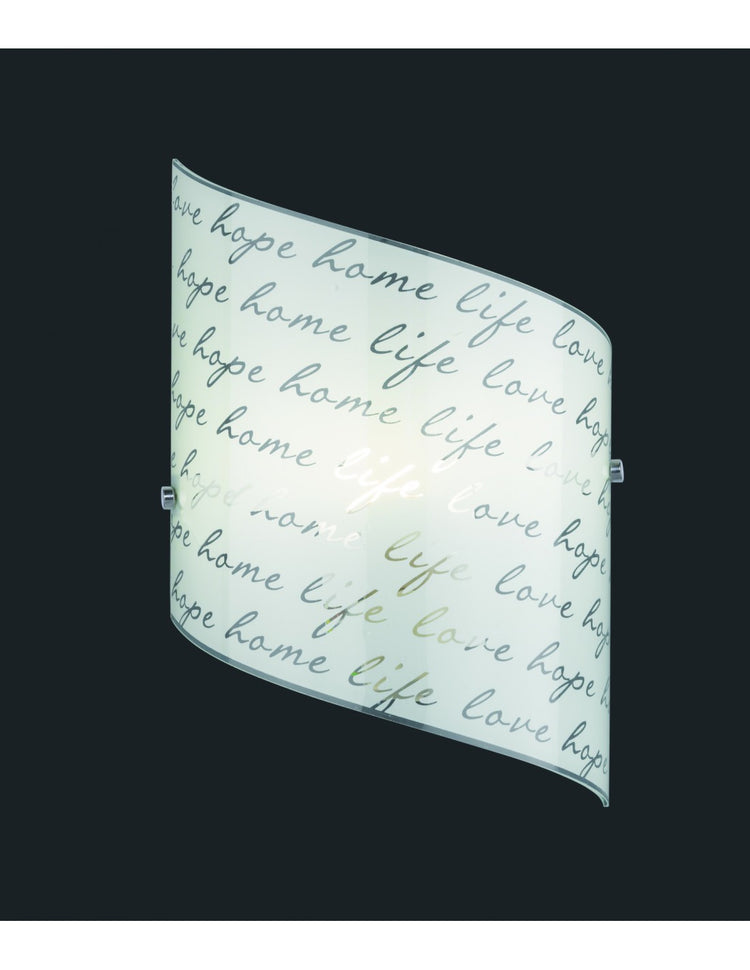 love hope home life love
hope home life love hope
love hope home life love hope
hope home life love hope
hope home life love hope
hope home life love hope
hope home life love hope